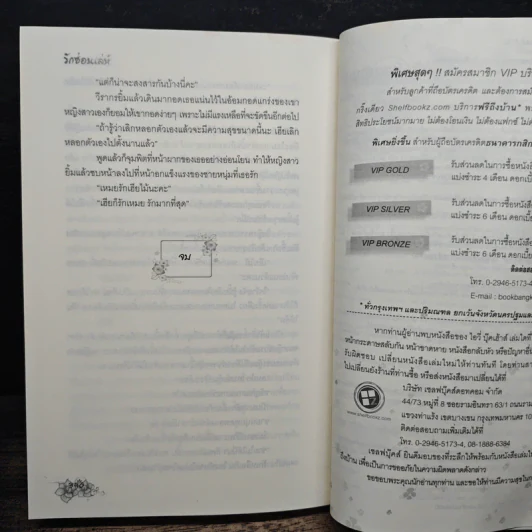 รักซ่อนเล่ห์
"แต่ก็น่าจะสงสารกันบ้างนี่คะ"
วีรากรยิ้มแล้วเดินมากอดเธอแน่นไว้ในอ้อมกอดแกร่งของเขา
หญิงสาวเองก็ยอมให้เขากอดง่ายๆ เพราะไม่มีแรงเหลือที่จะขัดขืนอีกต่อไป
"ถ้ารู้ว่าเลิกหลอกตัวเองแล้วจะมีความสุขขนาดนี้นะ เฮียเลิก
หลอกตัวเองไปตั้งนานแล้ว"
พูดแล้วก็จุมพิตที่หน้าผากของเธออย่างอ่อนโยน ทำให้หญิงสาว
ยิ้มแล้วซบหน้าลงไปที่หน้าอกแข็งแรงของชายหนุ่มที่เธอรัก
"เหมยรักเฮียไม้นะคะ"
"เฮียก็รักเหมย รักมากที่สุด"
จบ
พิเศษสุดๆ !! สมัครสมาชิก VIP
สำหรับลูกค้าที่ถือบัตรเครดิต และต้องการ
ครั้งเดียว Shelfbookz.com บริการฟรีถึงบ้าน*
สิทธิประโยชน์มากมาย ไม่ต้องโอนเงิน ไม่ต้อง
พิเศษยิ่งขึ้น สำหรับผู้ถือบัตรเครดิตธนาคารกสิก
VIP GOLD
รับส่วนลดในการซื้อหนังสือ
แบ่งชำระ 4 เดือน ดอกเบี้ย
VIP SILVER
รับส่วนลดในการซื้อหนังสือ
แบ่งชำระ 6 เดือน ดอกเบี้ย
VIP BRONZE
รับส่วนลดในการซื้อหนังสือ
แบ่งชำระ 6 เดือน ดอกเบี้ย
โทร. 0-2946-5173-4
E-mail : bookbangk
* ทั่วกรุงเทพฯ และปริมณฑล ยกเว้นจังหวัดนครปฐมและ
หากท่านผู้อ่านพบหนังสือของ ไอวี่ บุ๊คเฮ้าส์ เล่มใดที่
หน้ากระดาษสลับกัน หน้าขาดหาย หนังสือกลับหัว หรือปัญหาอื่น
รับผิดชอบ เปลี่ยนหนังสือเล่มใหม่ให้ท่านทันที โดยท่าน
ไปเปลี่ยนยังร้านที่ท่านซื้อ หรือส่งหนังสือมาเปลี่ยนได้ที่
บริษัท เชลฟ์บุ๊คส์ดอทคอม จำกัด
44/73 หมู่ที่ 8 ซอยรามอินทรา 63/1 ถนนราม
แขวงท่าแร้ง เขตบางเขน กรุงเทพมหานคร 10
www.shelfbookz.com
ติดต่อสอบถามเพิ่มเติมได้ที่
โทร. 0-2946-5173-4, 08-1888-6384
เชลฟ์บุ๊คส์ ยินดีมอบของที่ระลึกให้พร้อมกับหนังสือเล่มใหม่
เพื่อเป็นการขออภัยในความผิดพลาดดังกล่าว
ขอขอบพระคุณนักอ่านทุกท่าน และขอให้ท่านมีความสุขใน